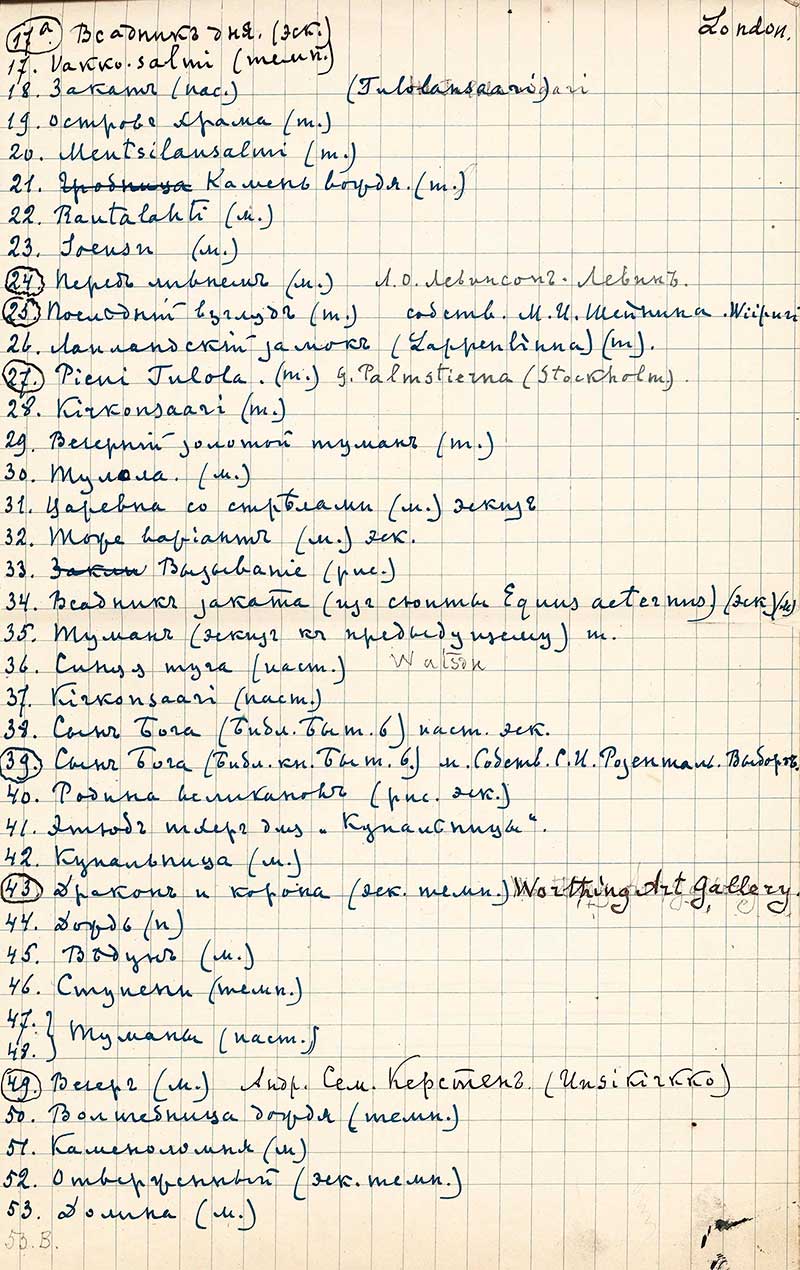 17а. Всадникъ дня. (эск.) London.
17. Vakko-salmi (темп.)
18. Закатъ (пас.) (Tulolansaari)
19. Островъ Храма (т.)
20. Mentsilansalmi (т.)
21. Гробница Камень вождя. (т.)
22. Rautalahti (м.)
23. Joensu (м.)
24. Передъ ливнемъ (м.) Л.О. Левинсонъ-Левинъ.
25. Последній взглядъ (т.) собств. М.И. Шейнина. Wiipuri
26. Лапландскій замокъ (Lappenlinna) (т).
27. Pieni Tulola. (т.) G. Palmstierna (Stockholm).
28. Kirkonsaari (т.)
29. Вечерній золотой туманъ (т.)
30. Тулола. (м.)
31. Царевна со стрѣлами (м.) эскизъ
32. Тоже варіантъ (м.) эск.
33. Закли Вызываніе (рис.)
34. Всадникъ заката (изъ сюиты Equus aeternus) (эск) (м)
35. Туманъ (эскизъ къ предыдущему) т.
36. Синяя туча (паст.) Watson
37. Kirkonsaari (паст.)
38. Сынъ Бога (Библ. Быт. 6) паст. эск.
39. Сынъ Бога (Библ. кн. Быт. 6.) м. Собств. С.И. Розенталь. Выборгъ.
40. Родина великановъ (рис. эск.)
41. Этюдъ для „Купальницы“.
42. Купальница (м.)
43. Драконъ и корона (эск. темп.) Worthing Art Gallery.
44. Дождь (п)
45. Вѣдунъ (м.)
46. Ступени (темп.)
47. } Туманы (паст.)
48.
49. Вечеръ (м.) Андр. Сем. Керстенъ. (Uusikirkko)
50. Волшебница дождя (темп.)
51. Каменоломня (м)
52. Отверженный (эск. темп.)
53. Долина (м.)
53. В.